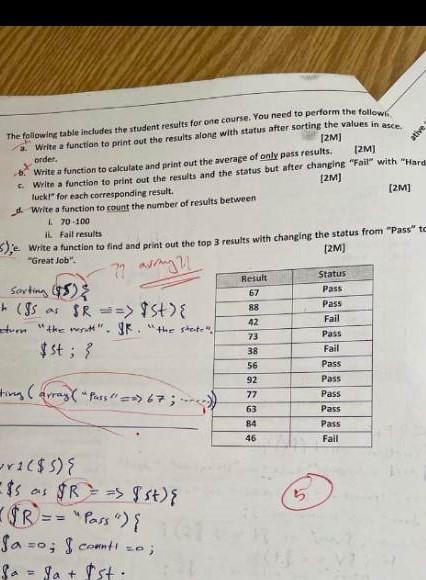 The following table includes the student results for one course. You need to perform the followi
a. Write a function to print out the results along with status after sorting the values in asce.
order. [2M]
b. Write a function to calculate and print out the average of only pass results. [2M]
c. Write a function to print out the results and the status but after changing "Fail" with "Hard
luck!" for each corresponding result. [2M]
d. Write a function to count the number of results between [2M]
i. 70 -100
ii. Fail results
e. Write a function to find and print out the top 3 results with changing the status from "Pass" to
"Great Job". [2M]
?? array ??
Result Status
67 Pass
88 Pass
42 Fail
73 Pass
38 Fail
56 Pass
92 Pass
77 Pass
63 Pass
84 Pass
46 Fail
sorting ($S) {
($S as $R ==> $St) {
"the result". $R. "the state".
$St ; }
(array ("Pass" ==> 67 ; ......))
5
r1 ($S) {
$S as $R ==> $St) {
($R == "Pass") {
$a =0; $count1 =0;
$a = $a + $St.